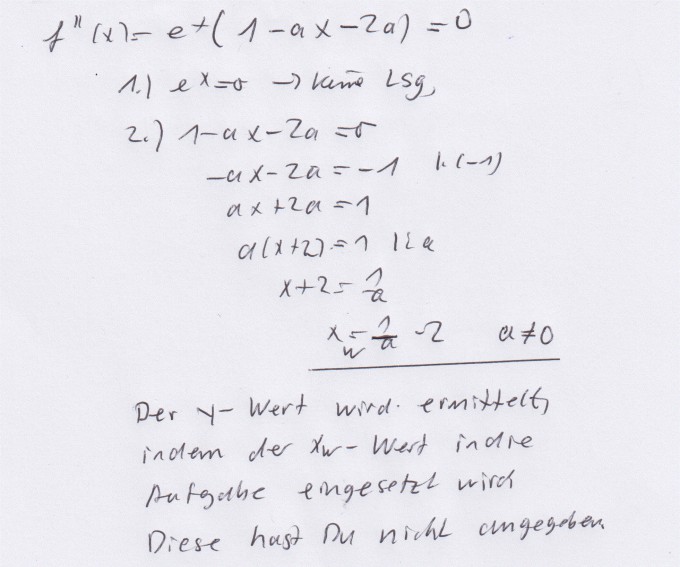 f''(x)= e^x( 1-ax-2a) = 0
1.) e^x=0 → keine Lsg,
2.) 1-ax-2a=0
-ax-2a=-1 |·(-1)
ax+2a=1
a(x+2)=1 |:a
x+2= 1/a
x_w= 1/a -2 a≠0
Der y-Wert wird ermittelt,
indem der xw-Wert in die
Aufgabe eingesetzt wird
Diese hast Du nicht angegeben.